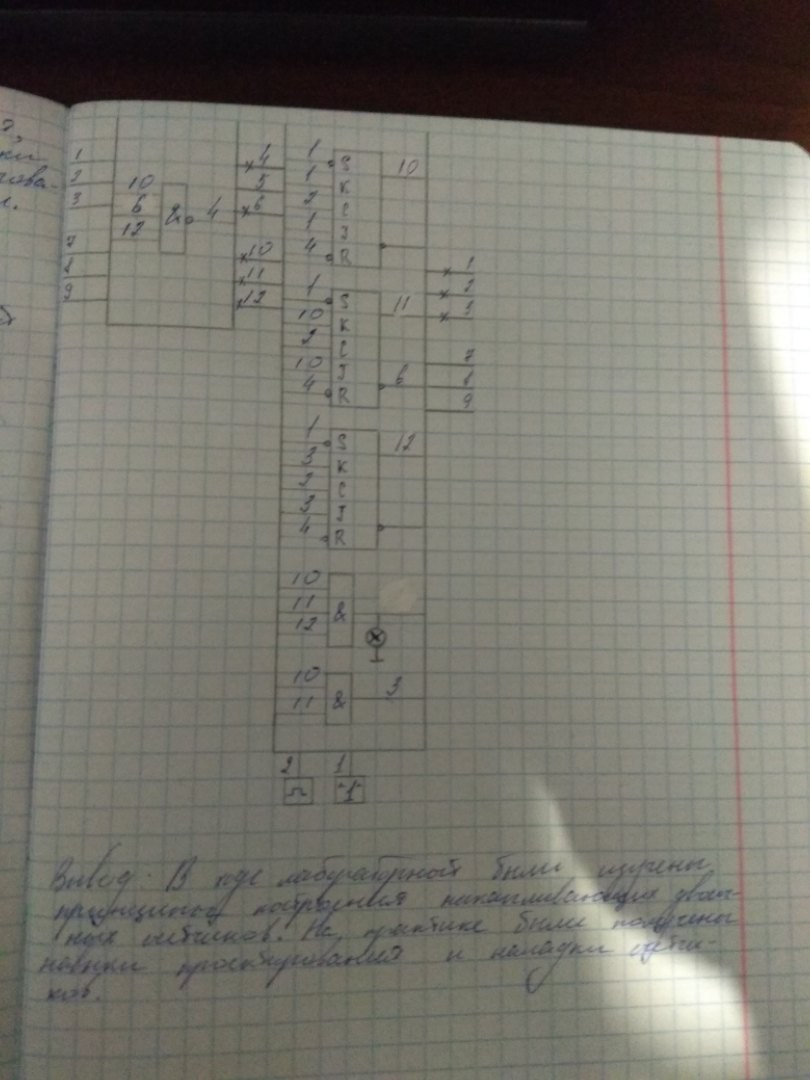 1
2
3
7
8
9
10
6
12
&
4
4
5
6
10
11
12
1 S
1 K
2 C
1 J
4 R
10
1 S
10 K
2 C
10 J
4 R
11
6
1 S
3 K
2 C
3 J
4 R
12
1
2
3
7
8
9
10
11
12
&
10
11
&
3
2
1
"1"
Вывод: В ходе лабораторной были изучены
принципы построения накапливающих двоич-
ных счётчиков. На практике были получены
навыки проектирования и наладки счётчи-
ков.